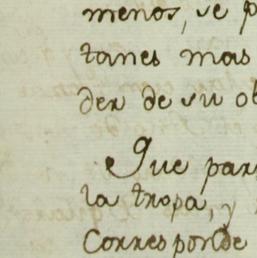 menos, se p
tanes mas
der de su ob
Que par
la tropa, y
Corresponde